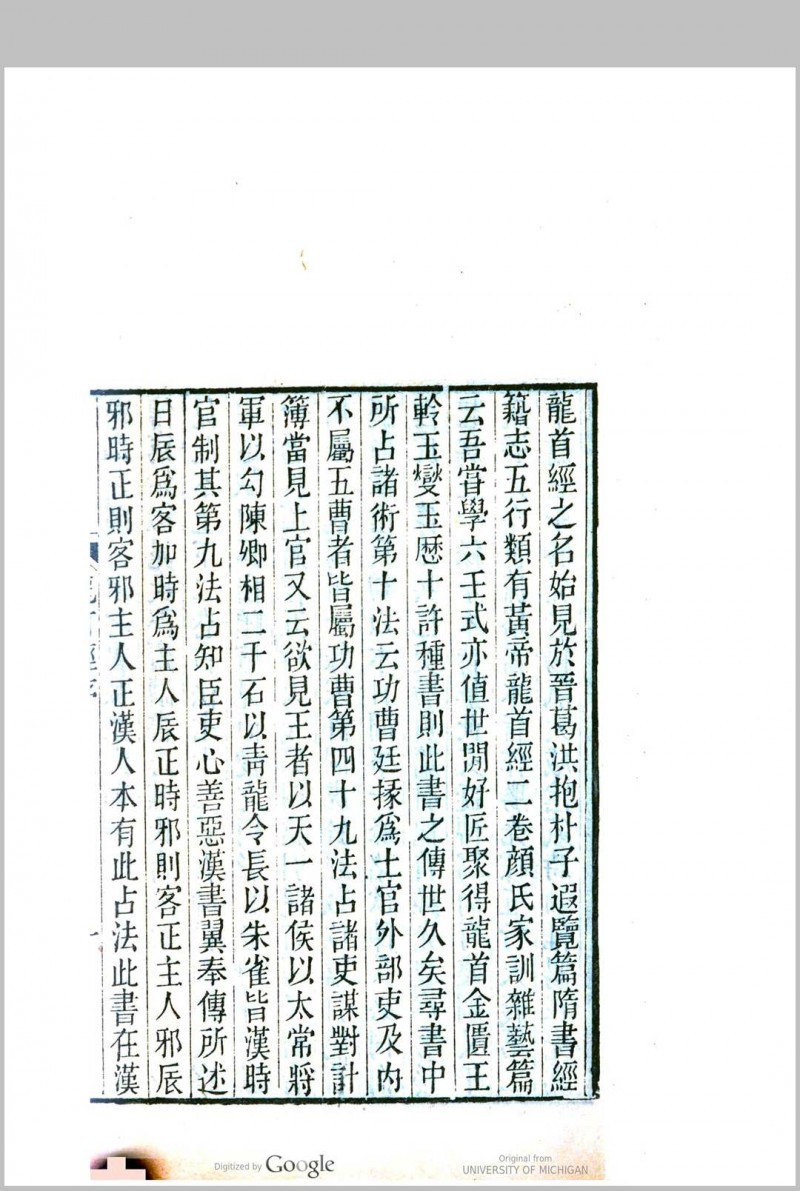 龍首經之名始見於晉葛洪抱朴子遐覽篇隋書經
籍志五行類有黃帝龍首經二卷顏氏家訓雜藝篇
云吾嘗學六壬式亦值世閒好匠聚得龍首金匱王
軨玉燮玉歷十許種書則此書之傳世久矣尋書中
所占諸術第十法云功曹廷掾爲士官外部吏及內
不屬五曹者皆屬功曹第四十九法占諸吏謀對計
簿當見上官又云欲見王者以天一諸侯以太常將
軍以勾陳卿相二千石以靑龍令長以朱雀皆漢時
官制其第九法占知臣吏心善惡漢書翼奉傳所述
日辰爲客加時爲主人辰正時邪則客正主人邪辰
邪時正則客邪主人正漢人本有此占法此書在漢
Digitized by Google
Original from
UNIVERSITY OF MICHIGAN